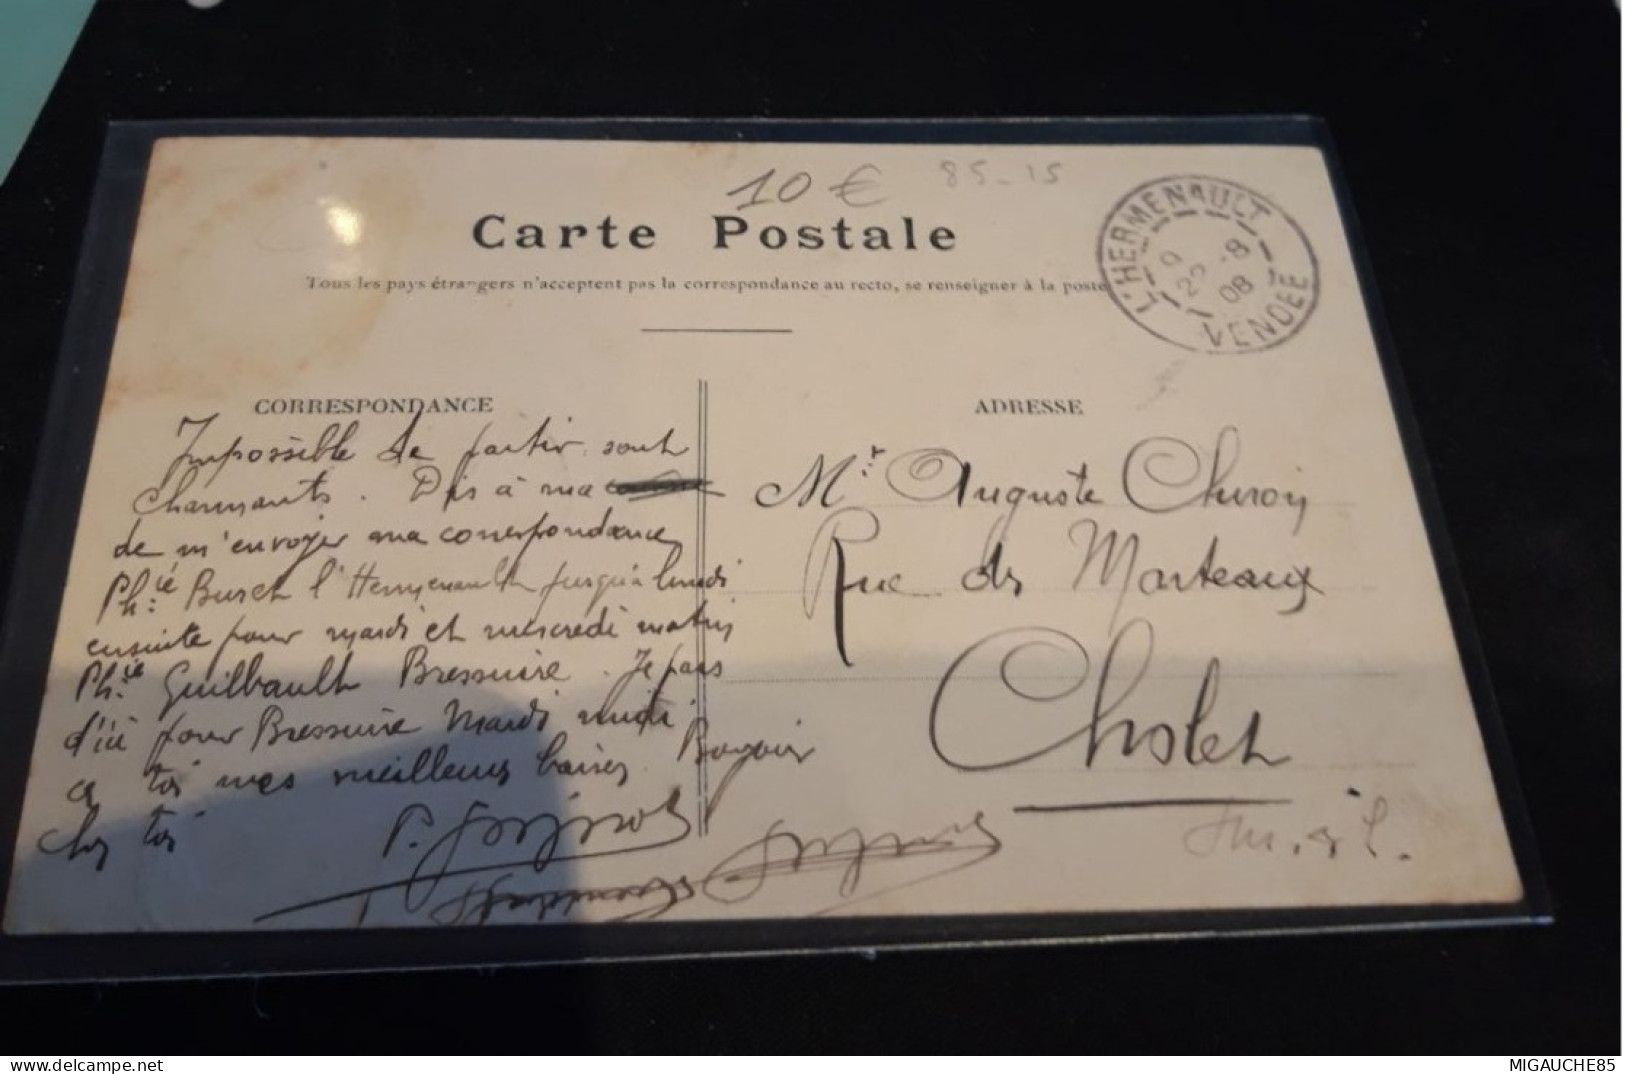 10 € 85-15
Carte Postale
Tous les pays étrangers n'acceptent pas la correspondance au recto, se renseigner à la poste
L'HERMENAULT
9
22 -8
08
VENDÉE
CORRESPONDANCE
Impossible de partir sont
charmants. Dis à ma
de m'envoyer ma correspondance
Ph.cie l'Hermenault jusqu'à lundi
ensuite pour mardi et mercredi matin
Ph.cie Guilbault Bressuire. Je pars
d'ici pour Bressuire Mardi midi
à toi mes meilleurs baisers. Bonjour
chez toi P.
ADRESSE
Mr Auguste
Rue des Marteaux
Cholet
MIGAUCHE85